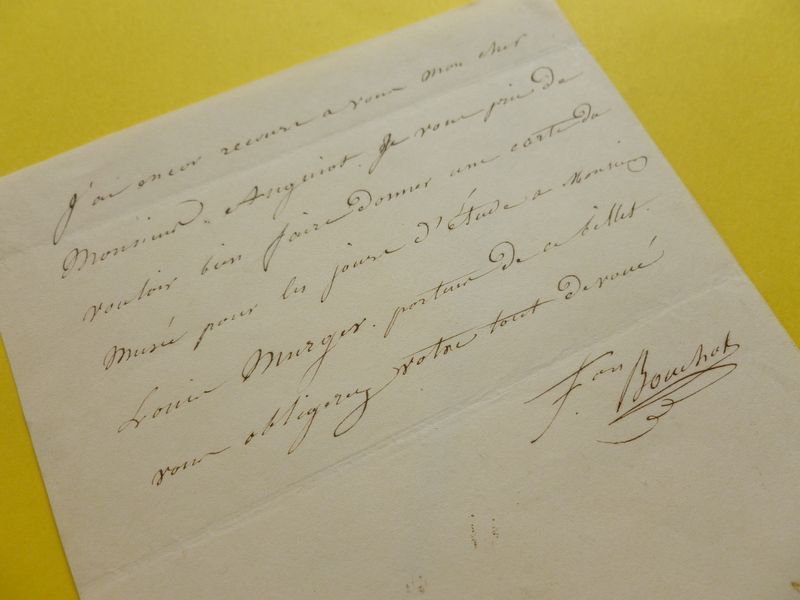 J'ai encor recours a vous mon cher
Monsieur Anguiot. Je vous prie de
vouloir bien faire donner une carte du
Musée pour les jours d'étude a Monsieur
Louis Murger. porteur de ce billet.
vous obligerez votre tout devoué
F.on Bouchot